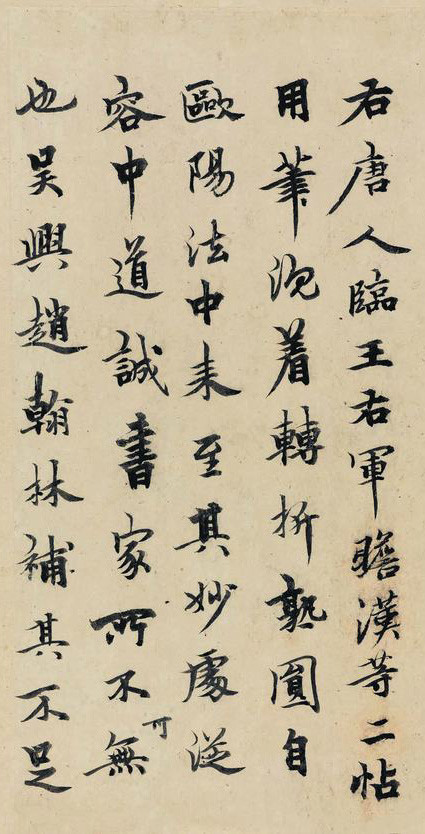 右唐人臨王右軍瞻漢等二帖
用筆沉着轉折熟圓自
歐陽法中來至其妙處從
容中道誠書家所不可無
也吳興趙翰林補其不足